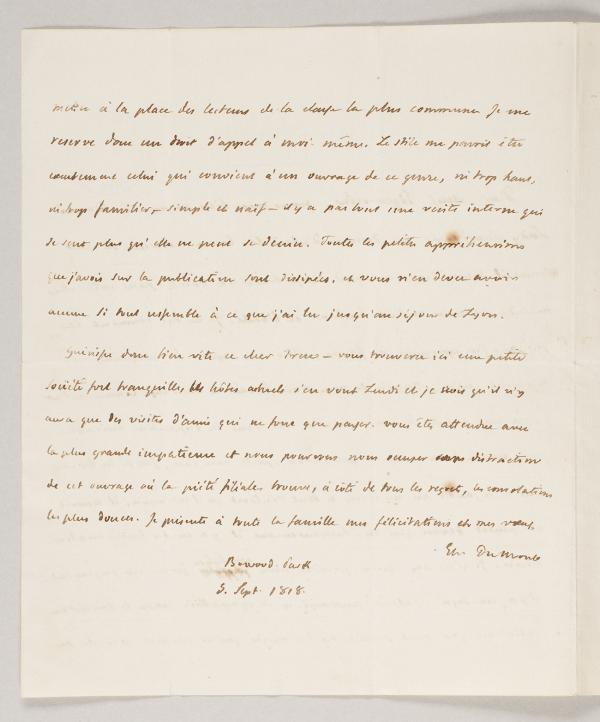 mettre à la place des lecteurs de la classe la plus commune. Je me
reserve donc un droit d'appel à moi-même. Le stile me parait être
celui qui convient à un ouvrage de ce genre, ni trop haut,
ni trop familier, – simple et naïf – il y a partout une verité interne qui
se sent plus qu'elle ne peut se definir. Toutes les petites appréhensions
que j'avois sur la publication sont dissipées, et vous n'en devez avoir
aucune si tout ressemble à ce que j'ai lu jusqu'au séjour de Lyon.
Guérissez donc bien vite ce cher – vous trouverez ici une petite
société fort tranquille, les hôtes actuels s'en vont Lundi et je crois qu'il n'y
aura que des visites d'amis qui ne font que passer. vous êtes attendue avec
la plus grande impatience et nous pourrons nous occuper sans distraction
de cet ouvrage où la piété filiale trouve, à côté de tous les regrets, les consolations
les plus douces. Je présente à toute la famille mes félicitations et mes vœux.
Et. Dumont
Bowood Park
5. Sept. 1818.